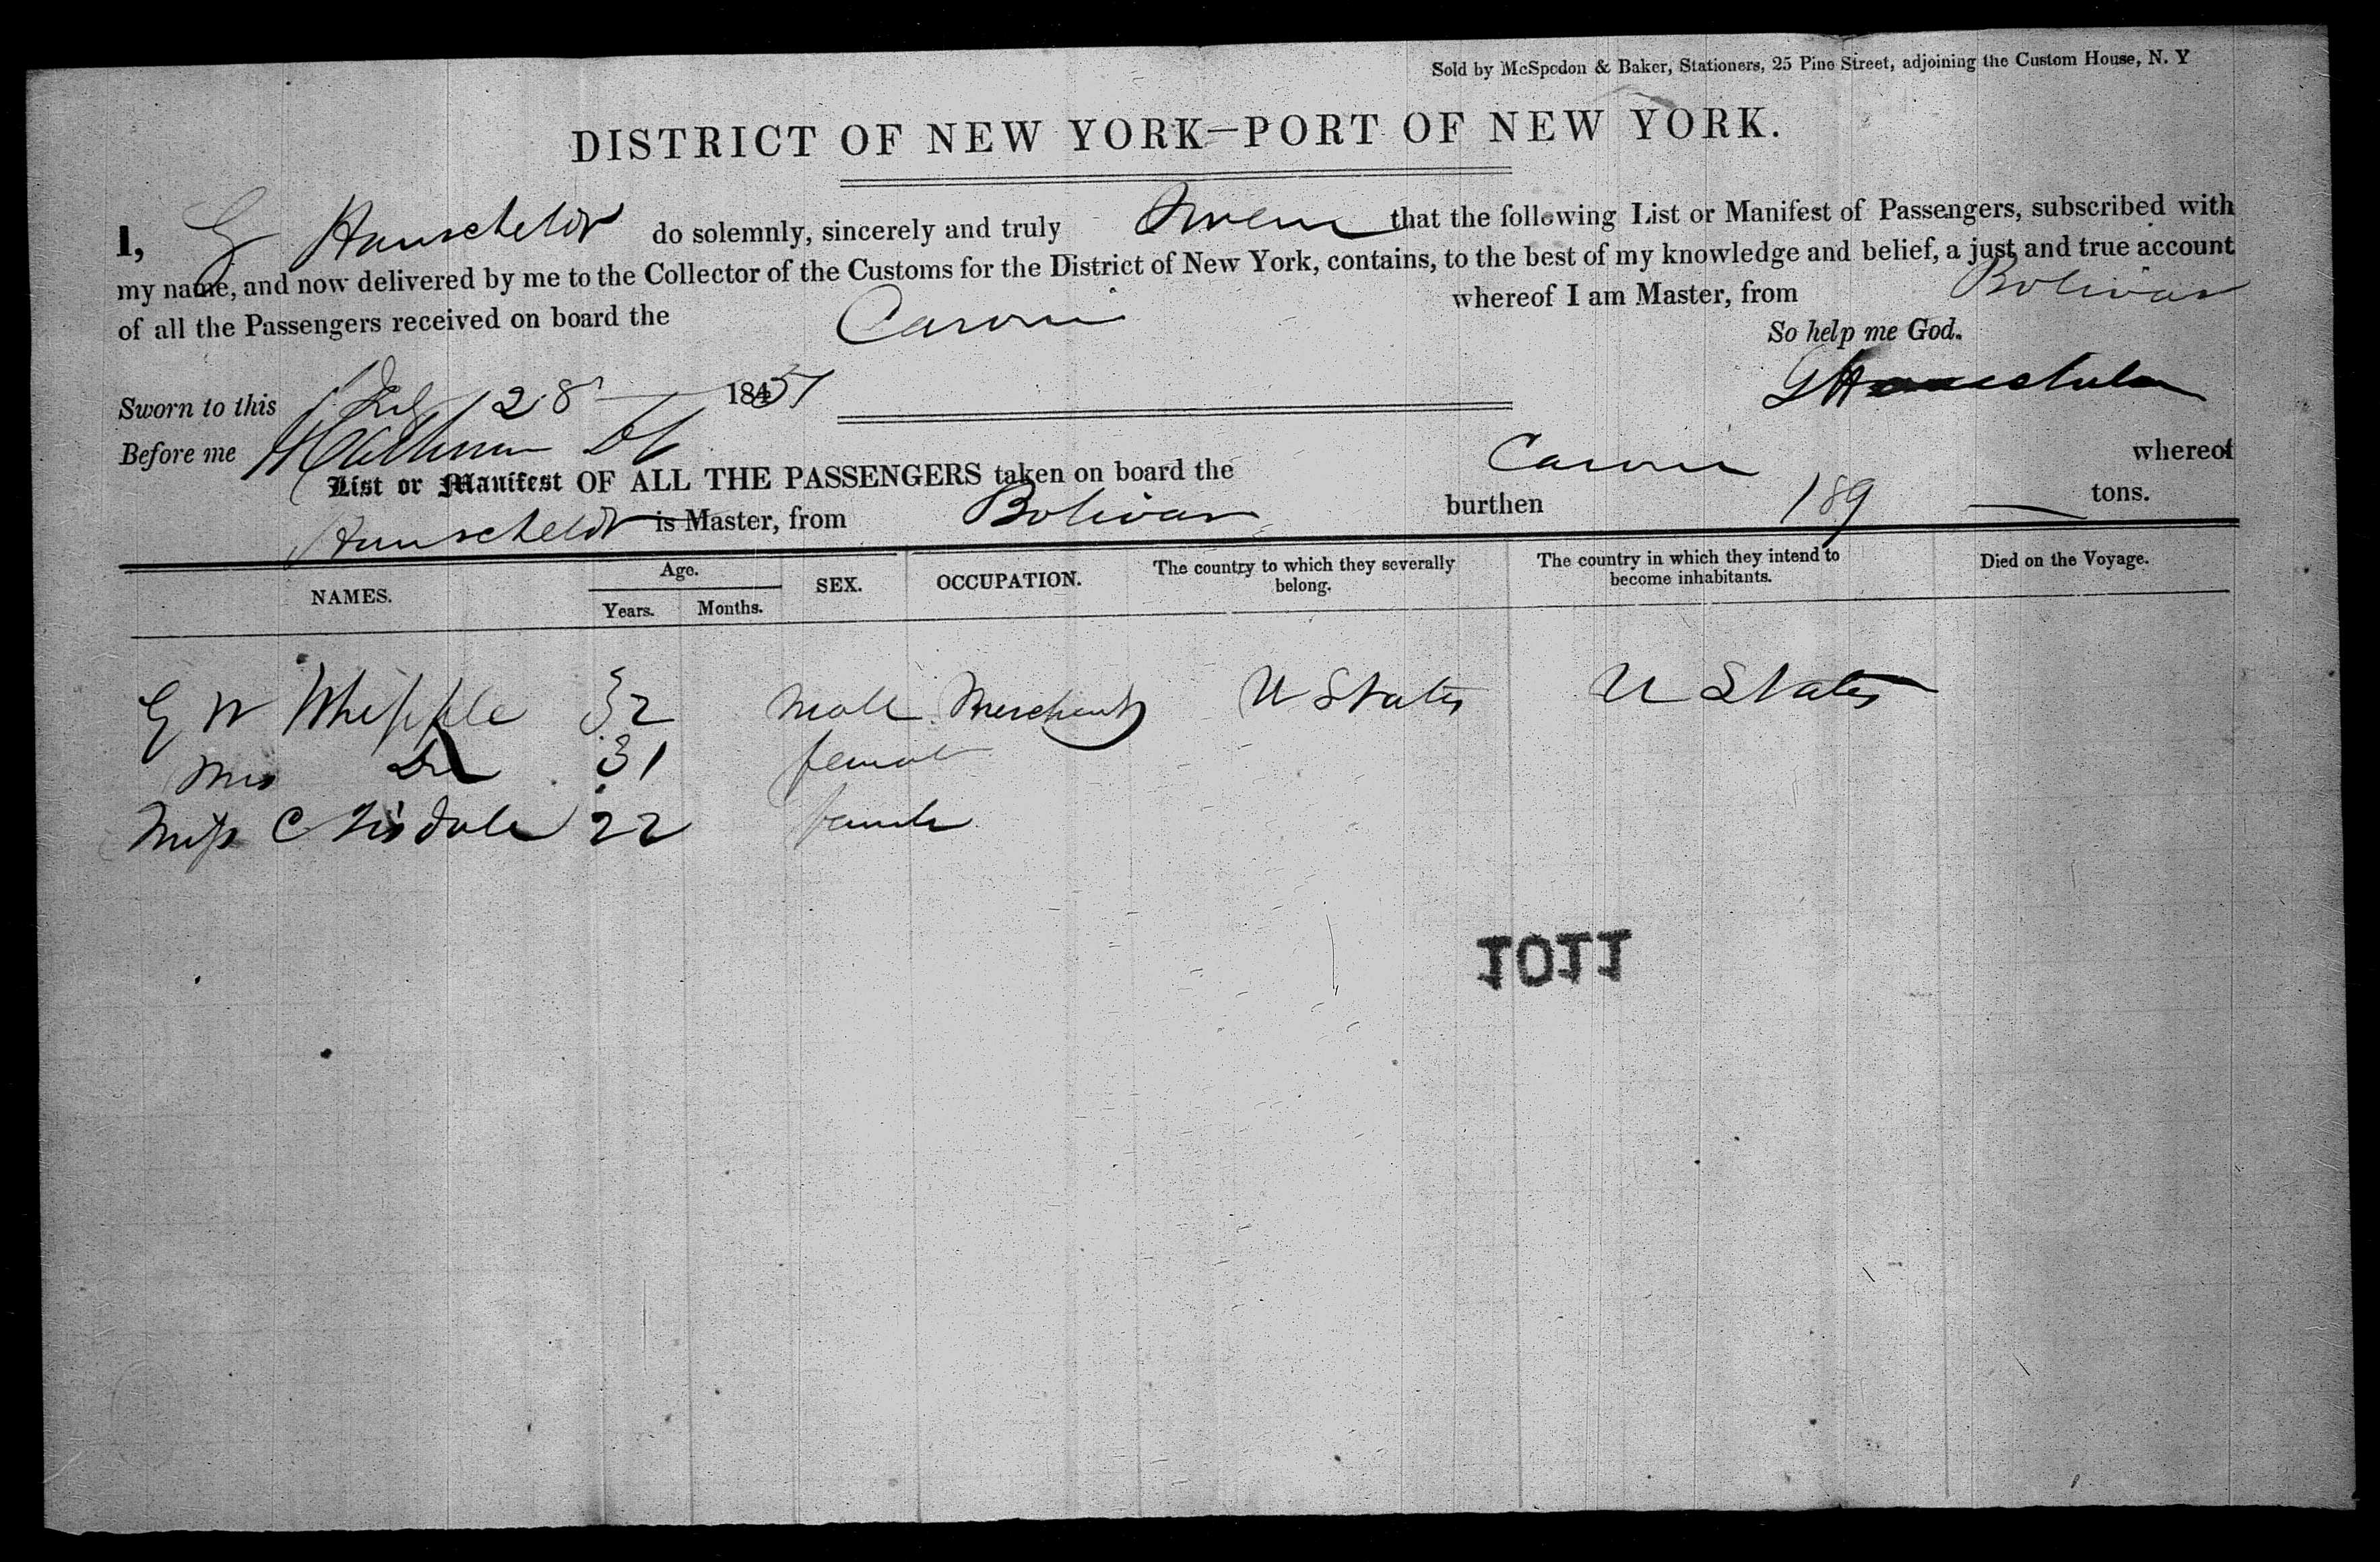 Sold by McSpedon & Baker, Stationers, 25 Pine Street, adjoining the Custom House, N. Y
DISTRICT OF NEW YORK—PORT OF NEW YORK.
I, G Hauscheldt do solemnly, sincerely and truly Swear that the following List or Manifest of Passengers, subscribed with
my name, and now delivered by me to the Collector of the Customs for the District of New York, contains, to the best of my knowledge and belief, a just and true account
of all the Passengers received on board the Caroni whereof I am Master, from Bolivar
So help me God.
Sworn to this 28 1851
Before me
List or Manifest OF ALL THE PASSENGERS taken on board the Caroni whereof
Hauscheldt is Master, from Bolivar burthen 189 tons.
NAMES. Age. Years. Months. SEX. OCCUPATION. The country to which they severally belong. The country in which they intend to become inhabitants. Died on the Voyage.
G W Whipple 32 Male Merchant U States U States
Mrs Do 31 female
Miss C Tisdale 22 female
1011